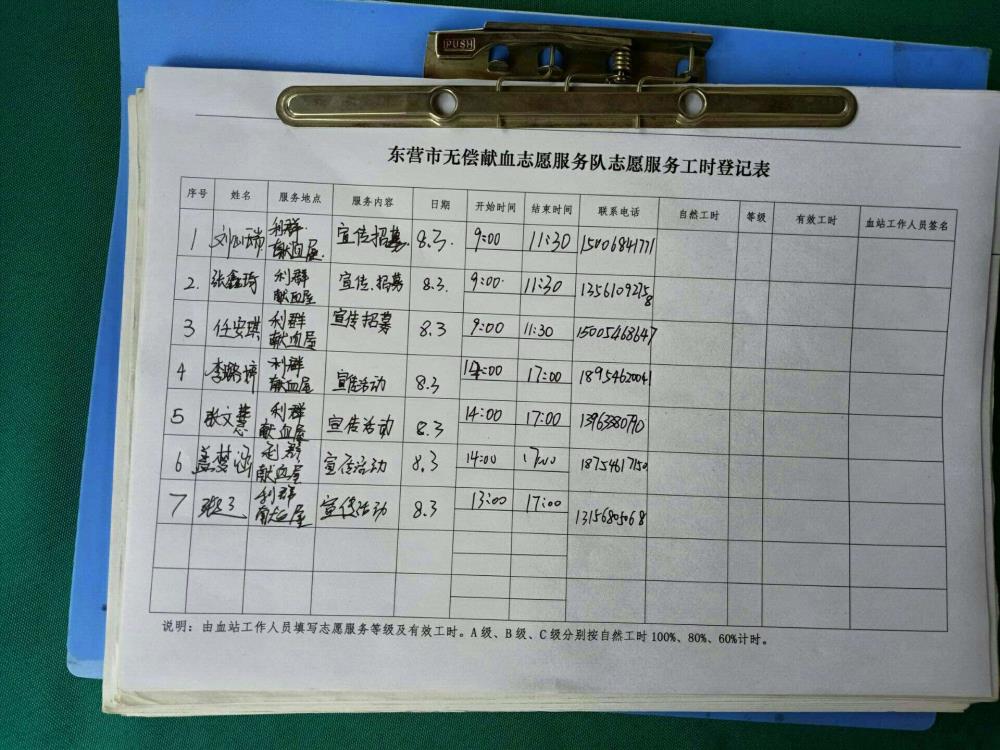 PUSH
东营市无偿献血志愿服务队志愿服务工时登记表
序号 姓名 服务地点 服务内容 日期 开始时间 结束时间 联系电话 自然工时 等级 有效工时 血站工作人员签名
1 利群献血屋 宣传招募 8.3. 9:00 11:30 15006841771
2. 张鑫琦 利群献血屋 宣传.招募 8.3. 9:00 11:30 13561092758
3 任安琪 利群献血屋 宣传招募 8.3 9:00 11:30 15005468647
4 利群献血屋 宣传活动 8.3 14:00 17:00 18954620041
5 张文慧 利群献血屋 宣传活动 8.3 14:00 17:00
6 盖梦涵 利群献血屋 宣传活动 8.3 14:00 17:00 18754617150
7 利群献血屋 宣传活动 8.3 13:00 17:00 13156805068
说明：由血站工作人员填写志愿服务等级及有效工时。A级、B级、C级分别按自然工时100%、80%、60%计时。